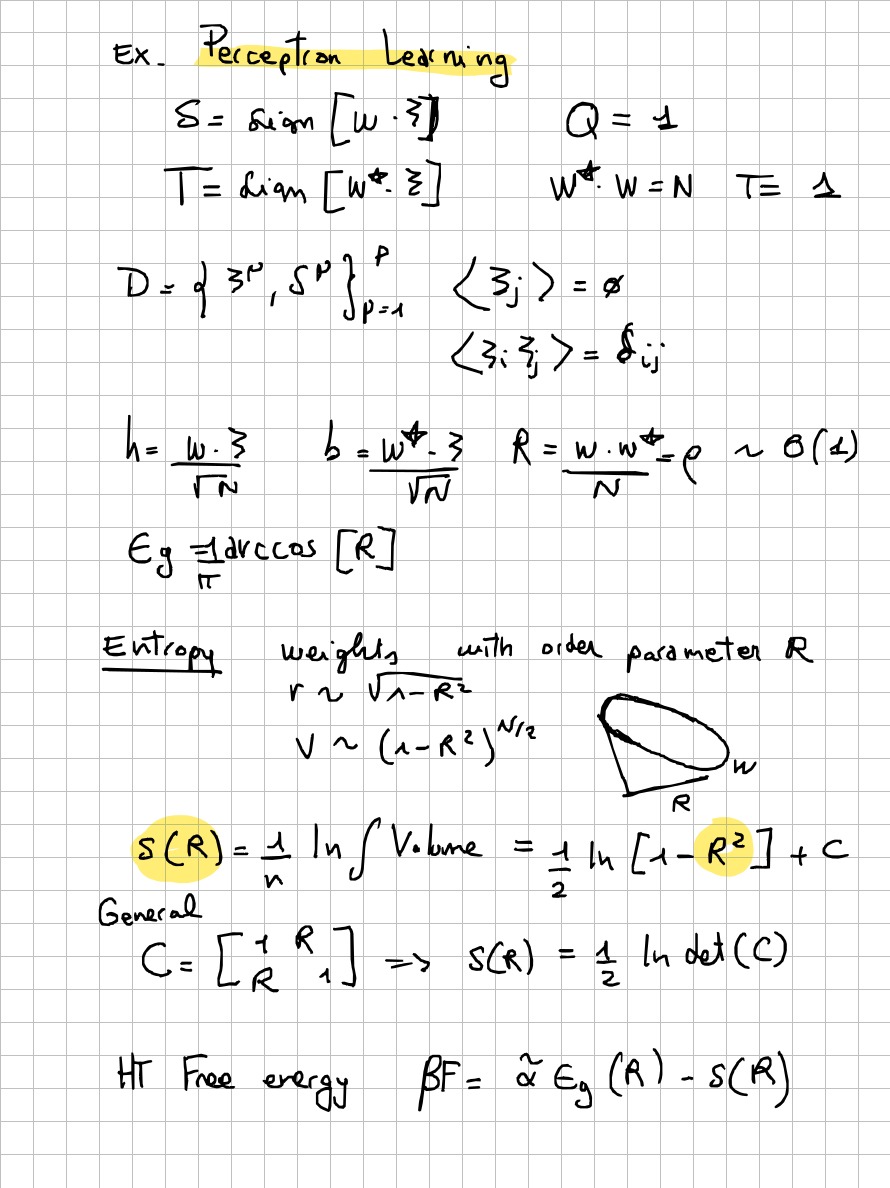 Ex. Perceptron Learning
S = sign [w · ξ] Q = 1
T = sign [w* · ξ] w* · w = N T = 1
D = { ξ^μ, S^μ }_{μ=1}^P ⟨ξ_j⟩ = 0
⟨ξ_i ξ_j⟩ = δ_ij
h = w · ξ / √N b = w* · ξ / √N R = w · w* / N = ρ ~ O(1)
Eg = 1/π arccos [R]
Entropy weights with order parameter R
r ~ √1-R²
V ~ (1-R²)^{N/2}
W
R
S(R) = 1/n ln ∫ Volume = 1/2 ln [1-R²] + C
General
C = [1 R; R 1] => S(R) = 1/2 ln det(C)
HT Free energy βF = α̃ Eg (R) - S(R)